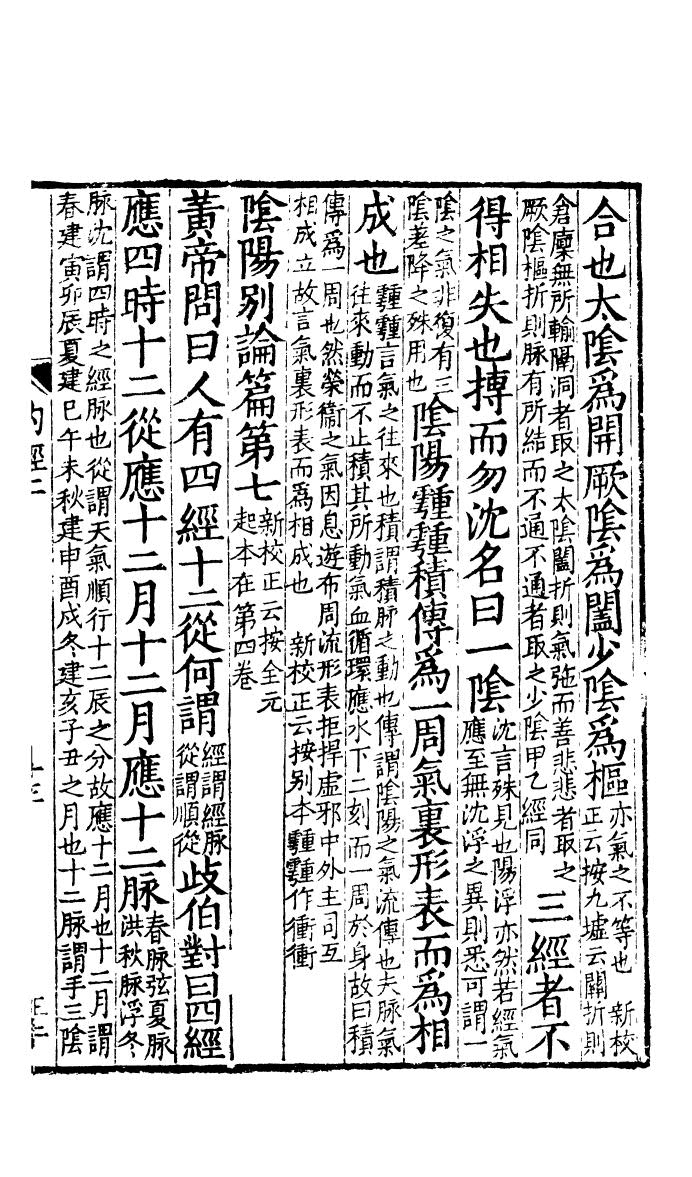 合也太陰爲開厥陰爲闔少陰爲樞亦氣之不等也　新校
正云按九墟云關折則
倉廩無所輸隔洞者取之太陰闔折則氣弛而善悲悲者取之
厥陰樞折則脉有所結而不通不通者取之少陰甲乙經同
三經者不
得相失也摶而勿沈名曰一陰沈言殊見也陽浮亦然若經氣
應至無沈浮之異則悉可謂一
陰之氣非復有三
陰差降之殊用也
陰陽𩅞𩅞積傳爲一周氣裏形表而爲相
成也𩅞𩅞言氣之往來也積謂積脉之動也傳謂陰陽之氣流傳也夫脉氣
往來動而不止積其所動氣血循環應水下二刻而一周於身故曰積
傳爲一周也然榮衞之氣因息遊布周流形表拒捍虛邪中外主司互
相成立故言氣裏形表而爲相成也　新校正云按別本𩅞𩅞作衝衝
陰陽別論篇第七新校正云按全元
起本在第四卷
黃帝問曰人有四經十二從何謂經謂經脉
從謂順從
歧伯對曰四經
應四時十二從應十二月十二月應十二脉春脉弦夏脉
洪秋脉浮冬
脉沈謂四時之經脉也從謂天氣順行十二辰之分故應十二月也十二月謂
春建寅卯辰夏建巳午未秋建申酉戌冬建亥子丑之月也十二脉謂手三陰
內經二